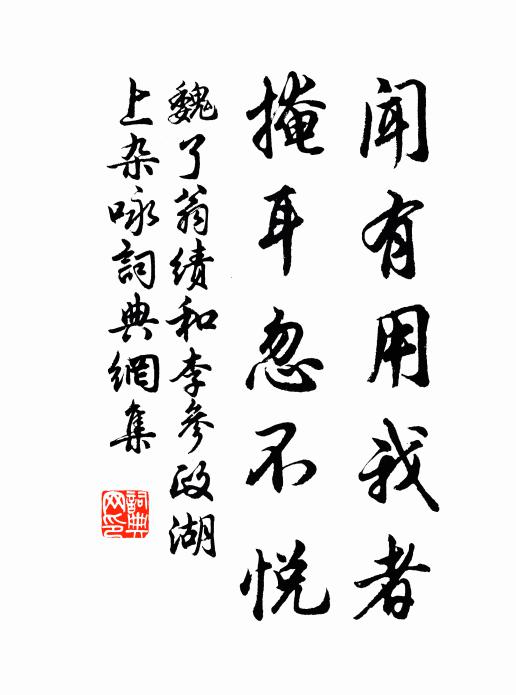 聞有用我者
掩耳忽不悅
魏了翁績和李參政湖
上杂咏詞典網集
詞典
网印